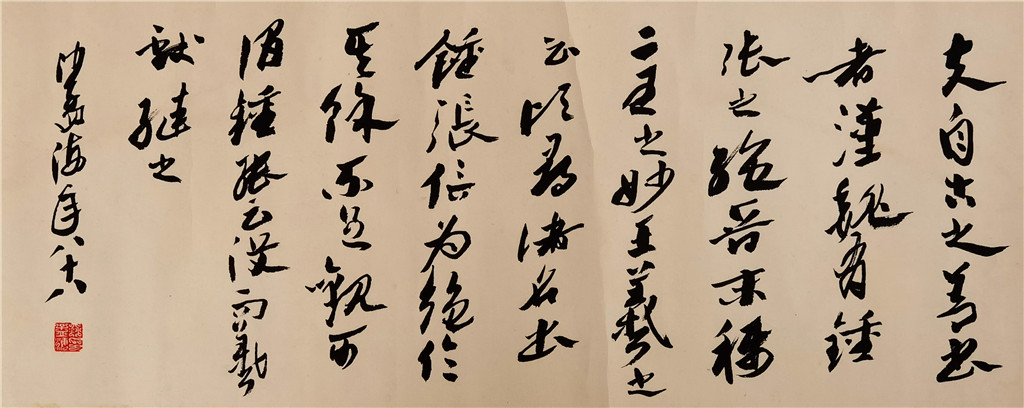 夫自古之善書
者漢魏有鍾
張之絕晉末稱
二王之妙王羲之
云頃尋諸名書
鍾張信為絕倫
其餘不足觀可
謂鍾張云沒而羲
獻繼之
沙孟海年八十八